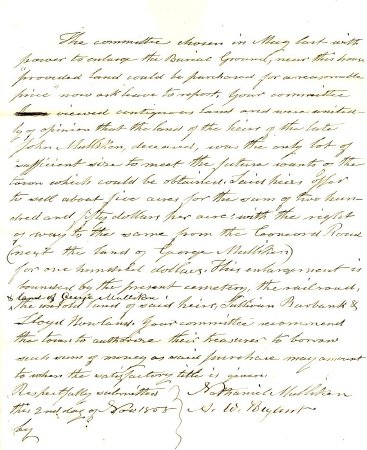 The committee chosen in May last with
power to enlarge the Burial Ground, near this house
"provided land could be purchased for a reasonable
price" now ask leave to report, Your committee
have viewed contiguous land and were united-
ly of opinion that the land of the heirs of the late
John Mulliken, deceased, was the only lot of
sufficient size to meet the future wants of the
town which could be obtained. Said heirs offer
to sell about five acres for the sum of two hun-
dred and fifty dollars per acre: with the right
of way to the same from the Concord Road
(next the land of George Mulliken)
for one hundred dollars. This enlargement is
bounded by the present cemetery, the railroad,
& land of George Mulliken
the unsold land of said heirs, Sullivan Burbank &
Lloyd. Your committee recommend
the town to authorize their treasurer to borrow
such sums of money as said purchase may amount
to when the satisfactory title is given.
Respectfully submitted
this 2nd day of Nov
by
Nathaniel Mulliken
A. W. Bryant